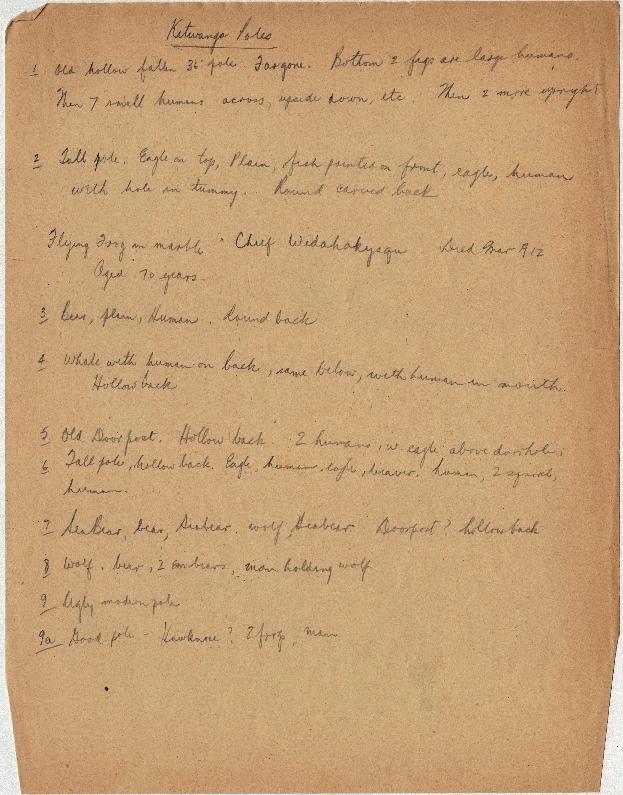 Kitwanga Poles
1 Old hollow fallen 36' pole Far gone. Bottom 2 figs are large humans
Then 7 small humans across, upside down, etc. Then 2 more upright
2 Tall pole. Eagle on top, Plain, fish painted on front, eagle, human
with hole in tummy. Round carved back
Flying Frog in marble Chief Widahakyaqu Died Mar 1912
Aged 70 years.
3 Bear, plain, Human. Round back
4 Whale with human on back, same below, with human in mouth.
Hollow back
5 Old Doorpost. Hollow back. 2 humans, w eagle above doorhole.
6 Tall pole, hollow back. Eagle, human, eagle, beaver, human, 2 squirrel,
human.
7 SeaBear, bear, Seabear, wolf, Seabear Doorpost? hollow back
8 Wolf. bear, 2 sm bears, man holding wolf
9 Ugly modern pole
9a Good pole - Hawknose? 2 frogs, man